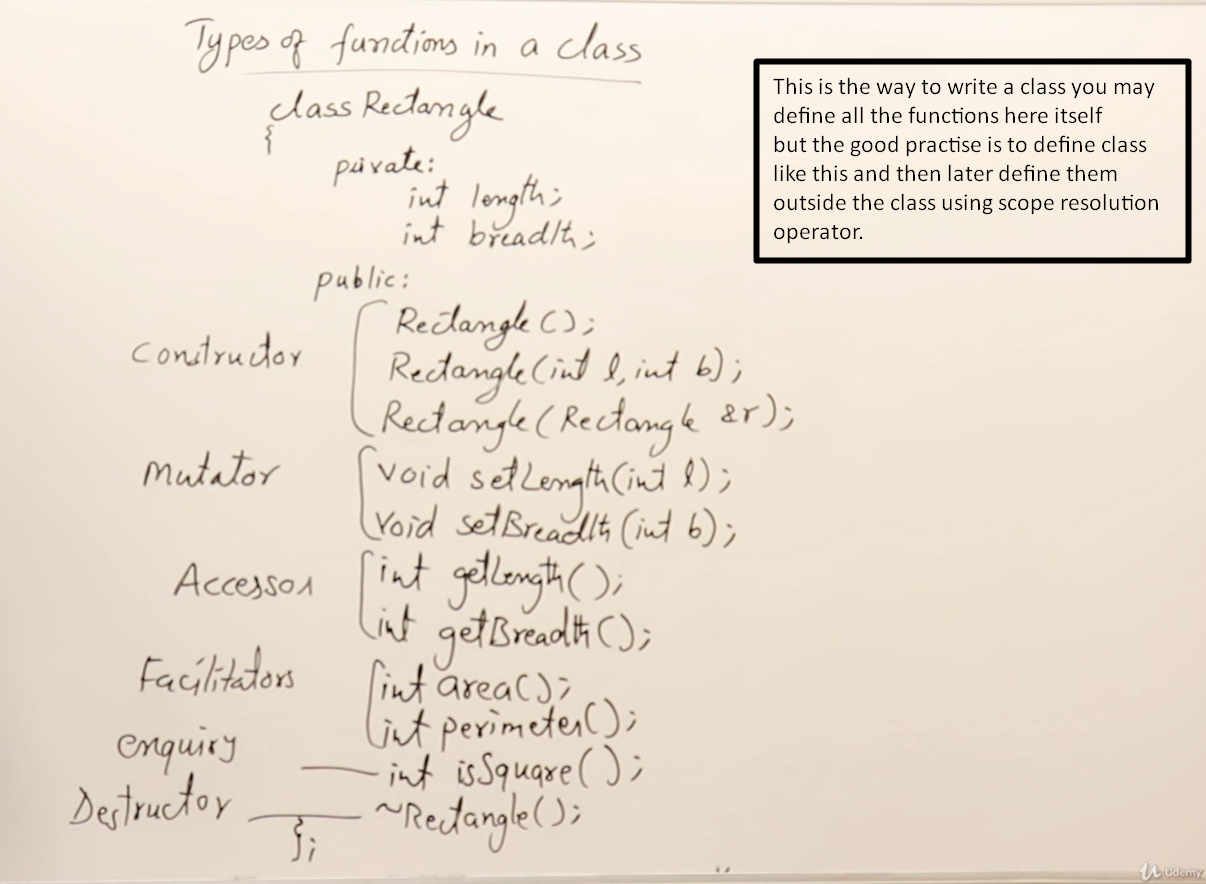 Types of functions in a class
class Rectangle
{
private:
int length;
int breadth;
public:
Constructor
Rectangle();
Rectangle(int l, int b);
Rectangle(Rectangle &r);
Mutator
void setLength(int l);
void setBreadth(int b);
Accessor
int getLength();
int getBreadth();
Facilitators
int area();
int perimeter();
enquiry
int isSquare();
Destructor
~Rectangle();
};
This is the way to write a class you may
define all the functions here itself
but the good practise is to define class
like this and then later define them
outside the class using scope resolution
operator.
Udemy